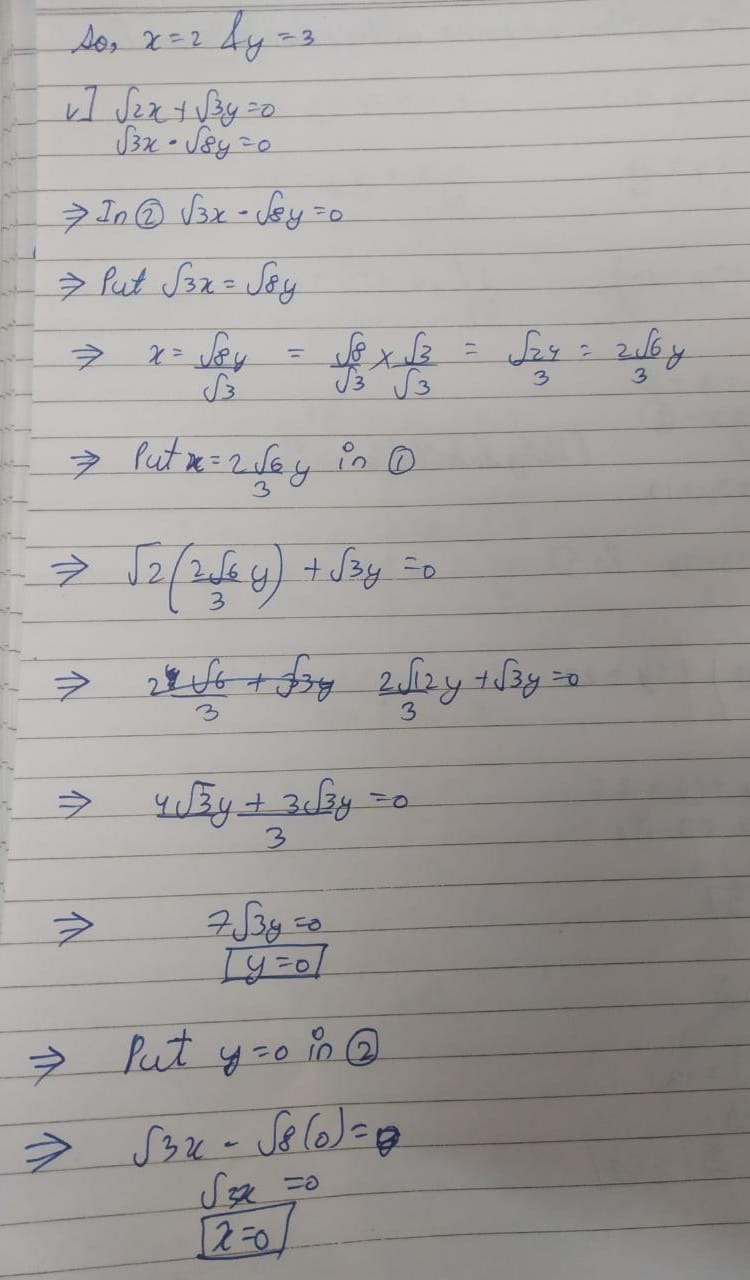 So, x=2 & y=3
v] √2x + √3y=0
√3x - √8y=0
⇒ In ② √3x - √8y=0
⇒ Put √3x = √8y
⇒ x= √8y/√3 = √8/√3 × √3/√3 = √24/3 = 2√6/3 y
⇒ Put x= 2√6/3 y in ①
⇒ √2(2√6/3 y) + √3y =0
⇒ 2√6/3 + √3y 2√12/3 y +√3y=0
⇒ (4√3y + 3√3y)/3 =0
⇒ 7√3y=0
y=0
⇒ Put y=0 in ②
⇒ √3x - √8(0)=0
√3x =0
x=0